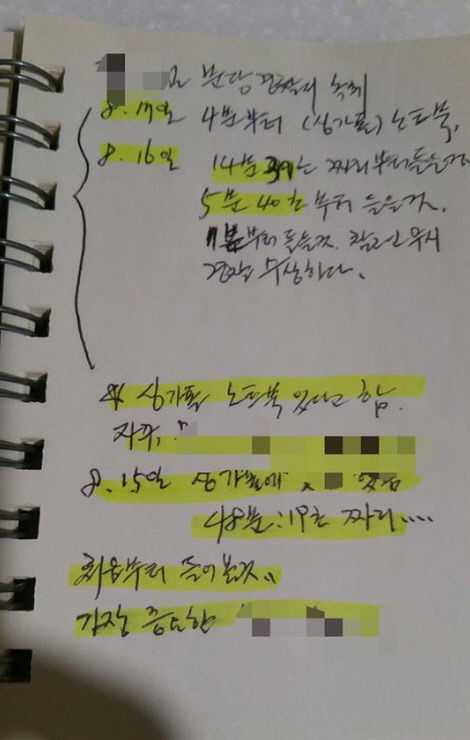 분당경찰서 녹취
8.17일 4분부터 (싱가폴) 노트북,
8.16일 14분 39초 짜리부터 들을것
5분 40초 부터 들을것.
11분부터 들을것. 참고인 무시
경찰 무상하다.
싱가폴 노트북 있다고 함.
자꾸,
8.15일 싱가폴에 있음
48분:19초 짜리....
처음부터 들어볼것..
가장 중요한